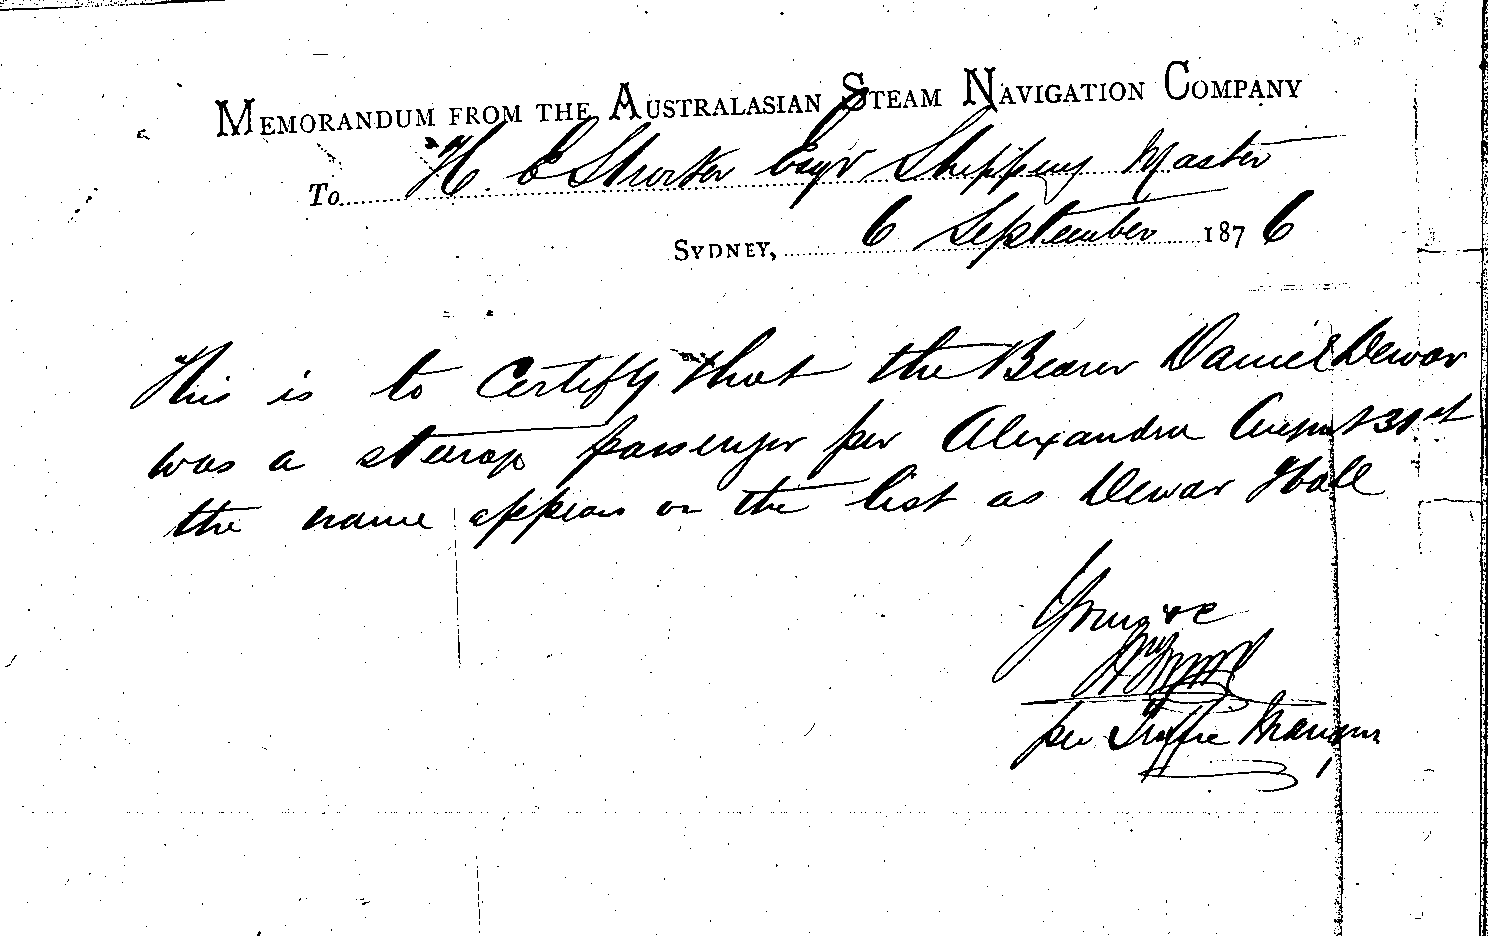 MEMORANDUM FROM THE AUSTRALASIAN STEAM NAVIGATION COMPANY
To H. E Esqr Shipping Master
SYDNEY, 6 September 1876
This is to Certify that the Bearer Daniel Dewar
was a steerage passenger per Alexandra August 31st
the name appears on the list as Dewar Hall
Yours &c
per Traffic Manager